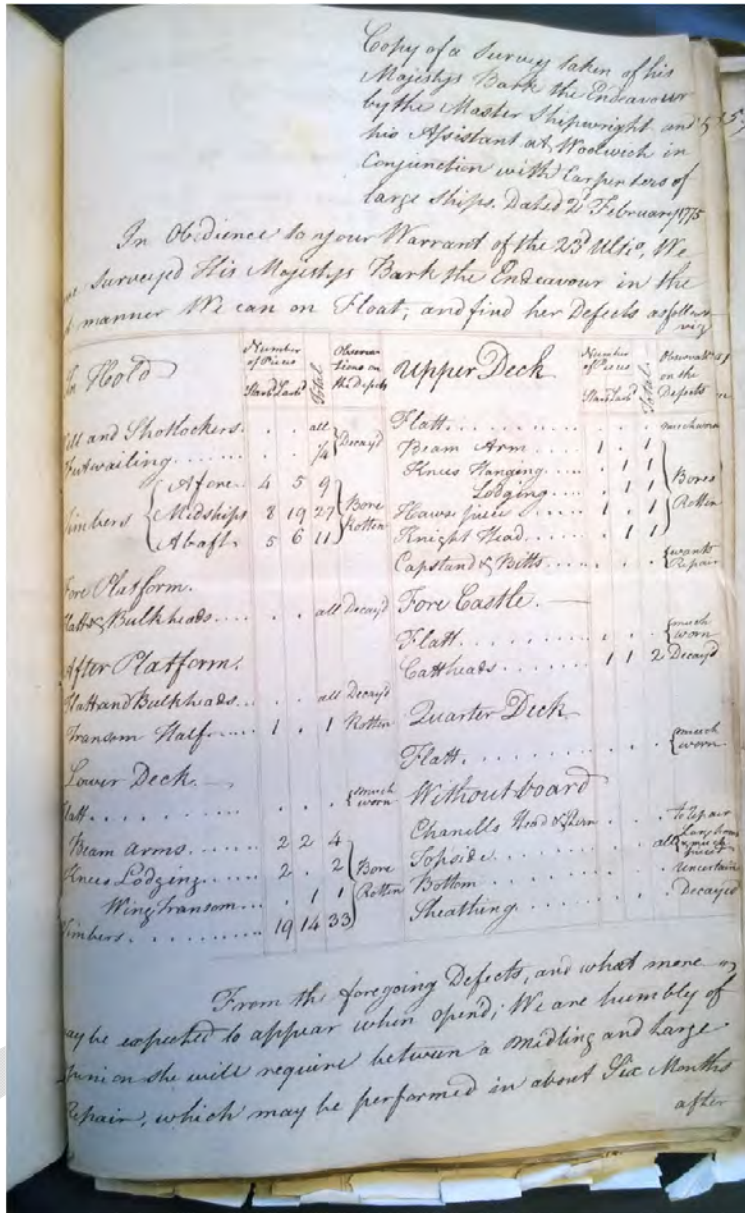 Copy of a Survey taken of his
Majestys Bark the Endeavour
by the Master Shipwright and
his Assistant at Woolwich in
Conjunction with Carpenters of
large Ships. Dated 2d February 1775
In Obedience to your Warrant of the 23d Ulto, We
Surveyed His Majestys Bark the Endeavour in the
manner We can on Float, and find her Defects as follow
viz
In Hold
Number of Pieces
Starbd Larbd
Total
Observations on the Defects
and Shotlockers . . all
Footwailing . . ¾ } Decay'd
Timbers { Afore 4 5 9
Midships 8 19 27
Abaft 5 6 11 } Bore Rotten
Fore Platform.
Flatt & Bulkheads . . all Decay'd
After Platform.
Flatt and Bulkheads . . all Decay'd
Transom Half 1 . 1 Rotten
Lower Deck.
Flatt . . . { much worn
Beam Arms 2 2 4
Knees Lodging 2 . 2
Wing Transom . 1 1
Timbers 19 14 33 } Bore Rotten
Upper Deck
Number of Pieces
Starbd Larbd
Total
on the Defects
Flatt . . . much worn
Beam Arm 1 . 1
Knees Hanging . 1 1
Lodging . 1 1
Hawse piece 1 . 1
Knight Head . 1 1 } Bore Rotten
Capstand & Bitts . . . { wants Repair
Fore Castle.
Flatt . . . { much worn
Cattheads 1 1 2 Decay'd
Quarter Deck
Flatt . . . { much worn
Without board
Chanells Head & Stern . . . to repair
Topside . . all
Bottom . . . Uncertain
Sheathing . . . Decayed
From the foregoing Defects, and what more
may be expected to appear when opend; We are humbly of
Opinion she will require between a Midling and Large
Repair, which may be performed in about Six Months
after